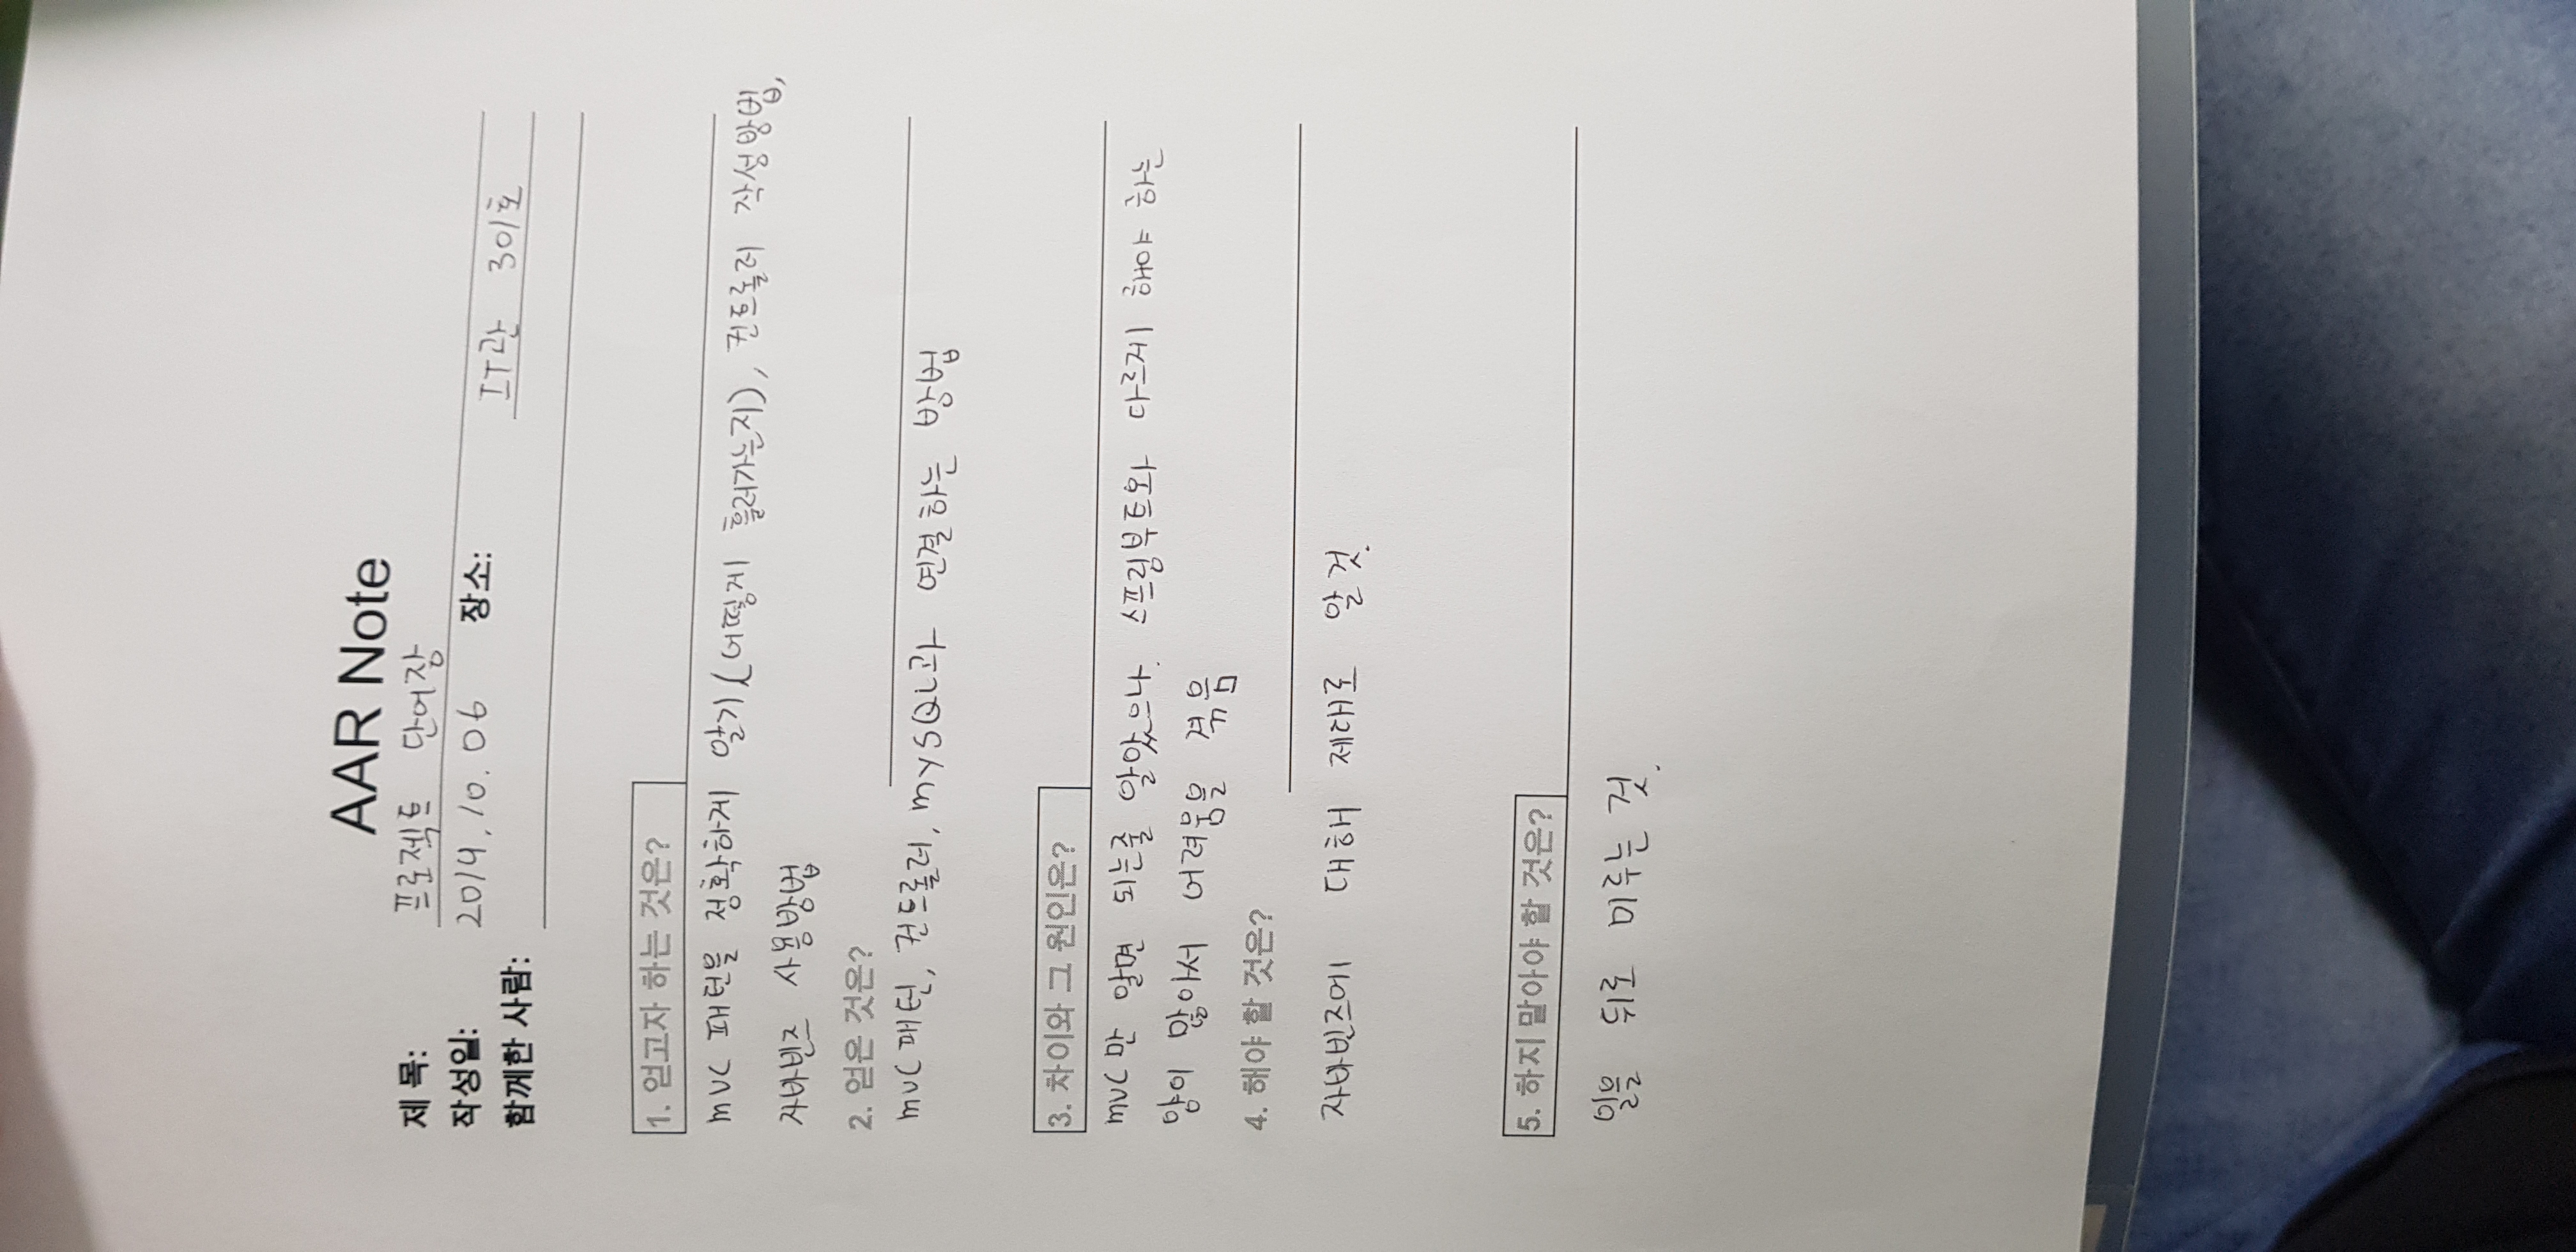 AAR Note
제 목: 프로젝트 단어장
작성일: 2014.10.06 장소: IT관 301호
함께한 사람:
1. 얻고자 하는 것은?
MVC 패턴을 정확하게 알기(어떻게 흘러가는지), 컨트롤러 작성방법,
자바빈즈 사용방법
2. 얻은 것은?
MVC 패턴, 컨트롤러, MYSQL과 연결하는 방법
3. 차이와 그 원인은?
MVC만 알면 되는줄 알았으나 스프링부트와 다르게 해야 하는
양이 많아서 어려움을 겪음
4. 해야 할 것은?
자바빈즈에 대해 제대로 알것.
5. 하지 말아야 할 것은?
일을 뒤로 미루는 것.